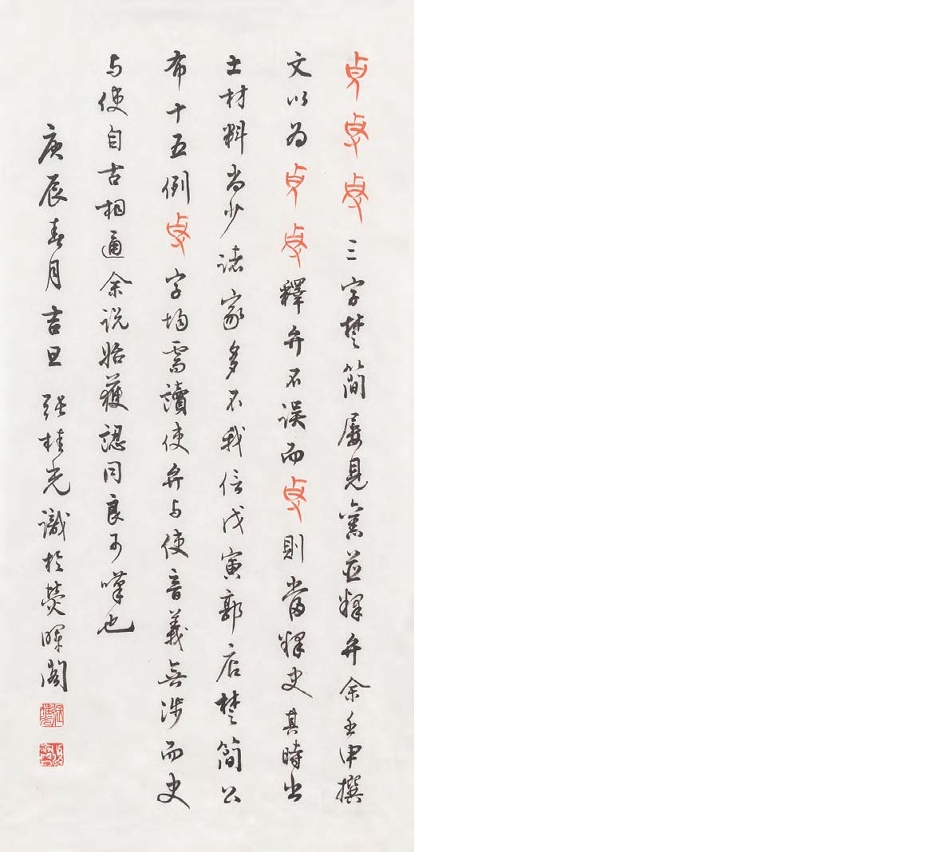 三字楚简屡見舊並釋弁余壬申撰
文以為釋弁不误而則當釋史其時出
土材料尚少诸家多不我信戊寅郭店楚簡公
布十五例字均需讀使弁与使音義無涉而史
与使自古相通余说始獲認同良可嘆也
庚辰春月吉旦 张桂光識於熒暉閣